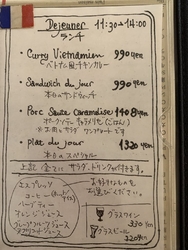 Dejeuner 11:30→14:00
ランチ
• Curry Vietnamien 990yen
ベトナム風チキンカレー
• Sandwich du jour 990yen
本日のサンドウィッチ
• Porc Sauté Caramelise 1108yen
• plat du jour 1320yen
本日のスペシャル
上記全てに サラダ、ドリンクが付きます。
エスプレッソ
コーヒー
ハーブティー
オレンジジュース
お好きなものを
お選びください。
グラスワイン
330yen
グラスビール
320yen